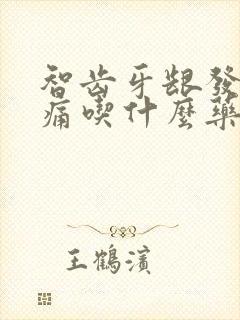 智齿牙龈發
痛喫什麼藥
王鶴濱